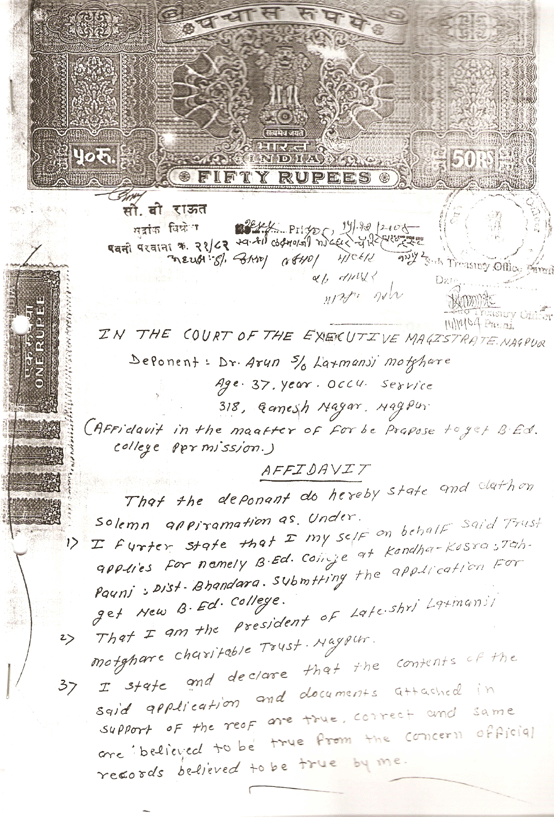 पचास रुपये
सत्यमेव जयते
५०रु.
भारत
INDIA
50RS
FIFTY RUPEES
सौ. बी राऊत
मुद्रांक
पवनी परवाना क्र. २१/८२
Sub Treasury Office Pauni
ONE RUPEE
IN THE COURT OF THE EXECUTIVE MAGISTRATE. NAGPUR
Deponent : Dr. Arun S/o Laxmanji motghare
Age. 37. year. OCCU. Service
318, Ganesh Nagar. Nagpur
(Affidavit in the maatter of for be Prapose to get B.Ed.
college ppr mission.)
AFFIDAVIT
That the deponant do hereby state and oathon
Solemn appiramation as. Under.
1) I furter state that I my self on behalf said Trust
applies for namely B.Ed. Collge at Kondha-Kosra, Tah-
Pauni, Dist-Bhandara. Submitting the application for
get New B.Ed. College.
2) That I am the president of Late. shri Laxmanji
motghare charitable Trust. Nagpur.
3) I state and declare that the contents of the
said application and documents attached in
support of the reof are true. correct and same
are believed to be true from the concern official
records believed to be true by me.